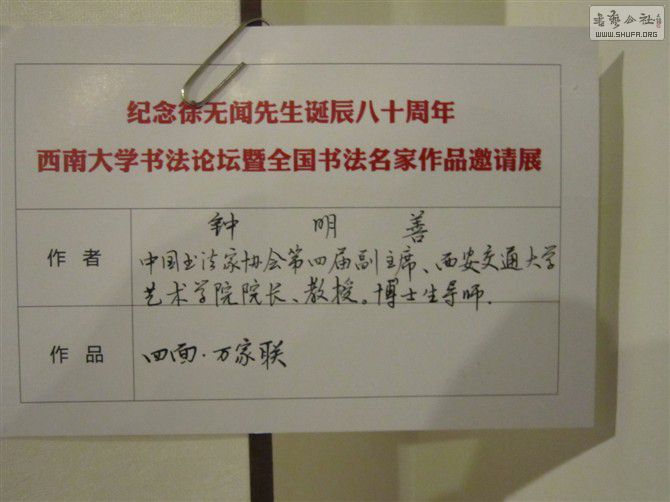 书艺公社
WWW.SHUFA.ORG
纪念徐无闻先生诞辰八十周年
西南大学书法论坛暨全国书法名家作品邀请展
作者
钟明善
中国书法家协会第四届副主席、西安交通大学
艺术学院院长、教授。博士生导师.
作品
四面·万家联